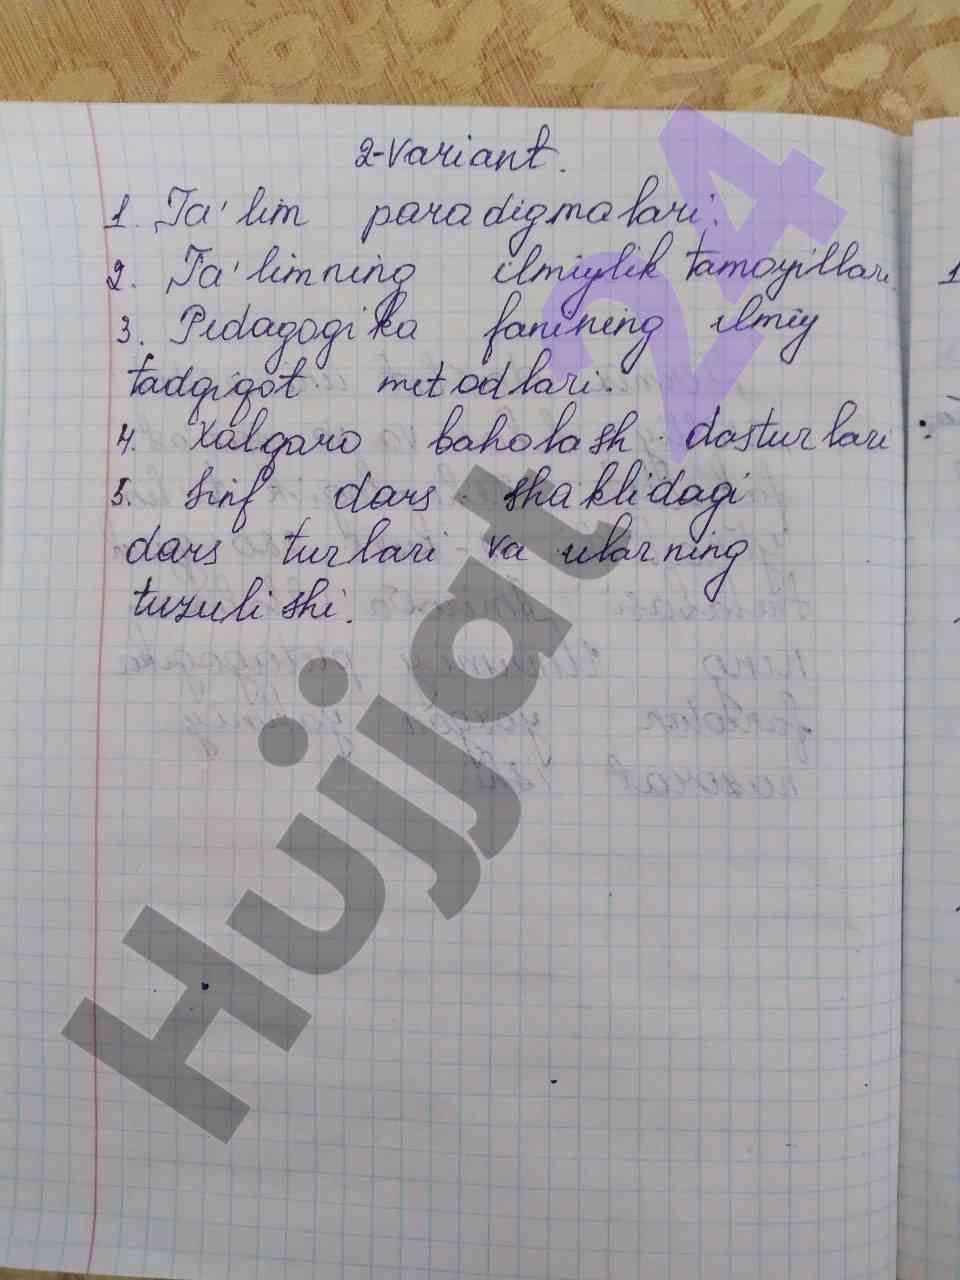 2-variant.
1. Ta'lim paradigmalari.
2. Ta'limning ilmiylik tamoyillari.
3. Pidagogika fanining ilmiy
tadqiqot metodlari.
4. Xalqaro baholash dasturlari
5. Sinf dars shaklidagi
dars turlari va ularning
tuzulishi.
Hujjat 24